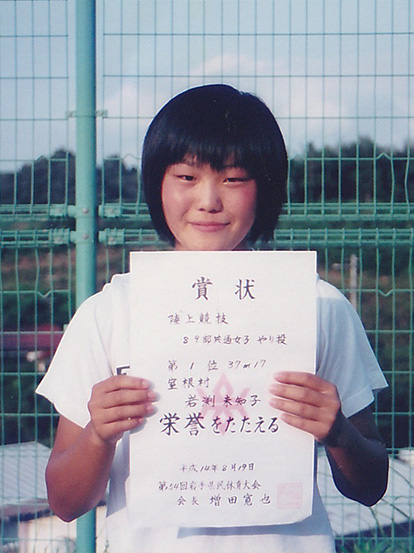 賞状
陸上競技
89部共通女子 やり投
第1位 37m17
室根村
岩渕未知子
栄誉をたたえる
平成14年8月19日
第54回岩手県民体育大会
会長 増田寛也